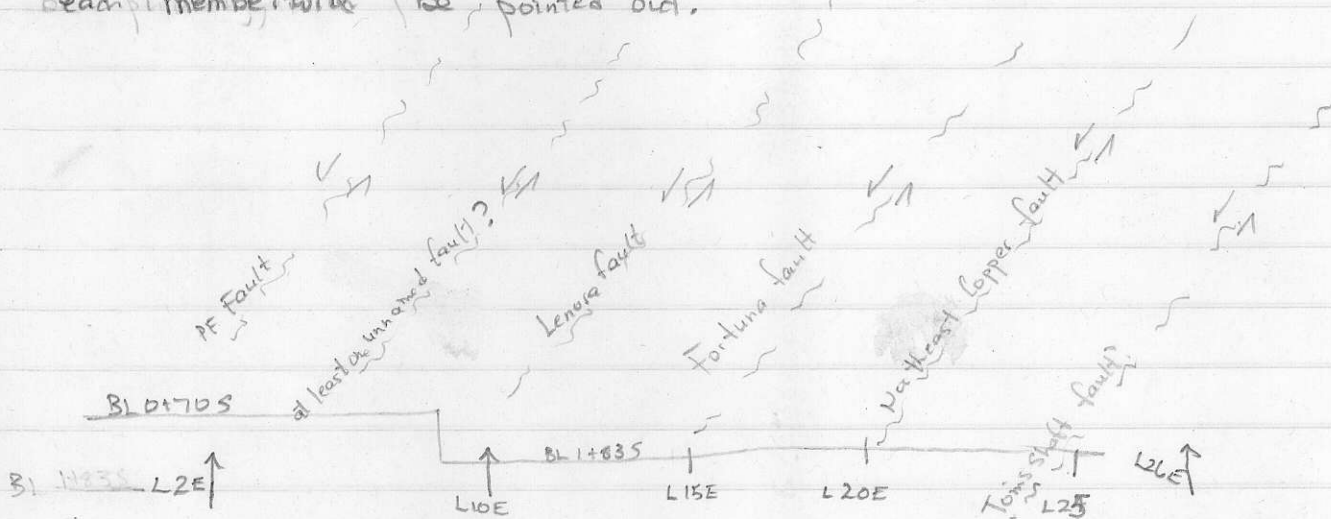 be pointed out.
PE Fault
at least one unnamed fault?
Lenora fault
Fortuna fault
Northeast Copper fault
Tom's Shaft fault?
BL 0+70S
BL 1+83S
BL 1+83S
L2E
L10E
L15E
L20E
L25
L26E